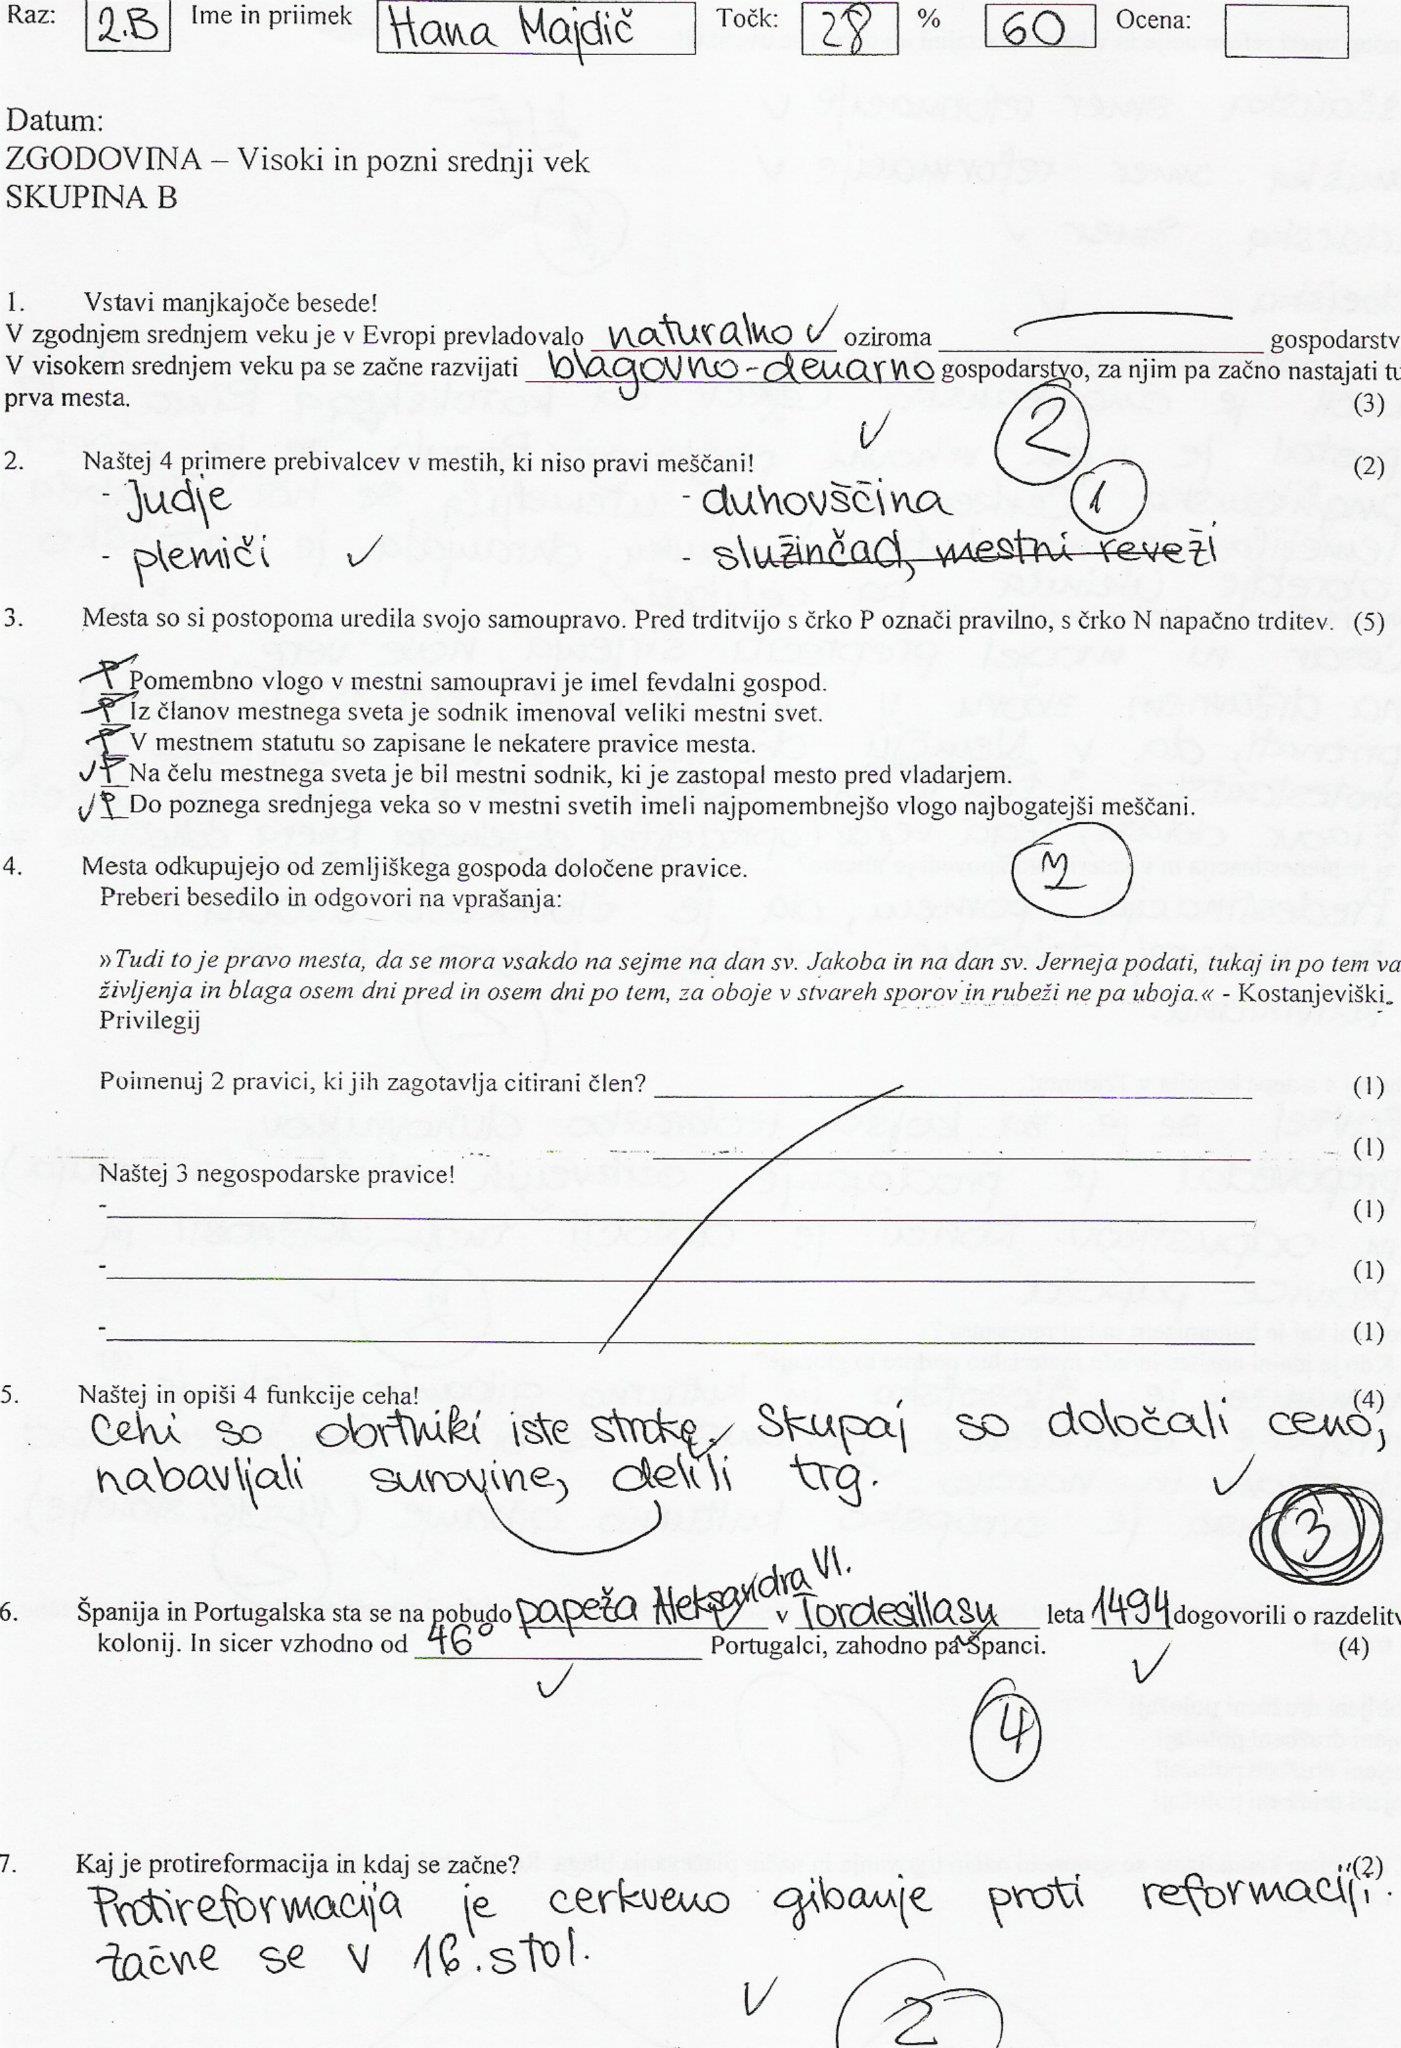 Raz: 2.B Ime in priimek Hana Majdič Točk: 28 % 60 Ocena:
Datum:
ZGODOVINA – Visoki in pozni srednji vek
SKUPINA B
1. Vstavi manjkajoče besede!
V zgodnjem srednjem veku je v Evropi prevladovalo naturalno ✓ oziroma gospodarstv
V visokem srednjem veku pa se začne razvijati blagovno-denarno gospodarstvo, za njim pa začno nastajati tu
prva mesta. (3)
✓ 2
2. Naštej 4 primere prebivalcev v mestih, ki niso pravi meščani! (2)
- Judje - duhovščina 1
- plemiči ✓ - služinčad, mestni reveži
3. Mesta so si postopoma uredila svojo samoupravo. Pred trditvijo s črko P označi pravilno, s črko N napačno trditev. (5)
P Pomembno vlogo v mestni samoupravi je imel fevdalni gospod.
P Iz članov mestnega sveta je sodnik imenoval veliki mestni svet.
P V mestnem statutu so zapisane le nekatere pravice mesta.
✓ P Na čelu mestnega sveta je bil mestni sodnik, ki je zastopal mesto pred vladarjem.
✓ P Do poznega srednjega veka so v mestni svetih imeli najpomembnejšo vlogo najbogatejši meščani.
2
4. Mesta odkupujejo od zemljiškega gospoda določene pravice.
Preberi besedilo in odgovori na vprašanja:
»Tudi to je pravo mesta, da se mora vsakdo na sejme na dan sv. Jakoba in na dan sv. Jerneja podati, tukaj in po tem va
življenja in blaga osem dni pred in osem dni po tem, za oboje v stvareh sporov in rubeži ne pa uboja.« - Kostanjeviški
Privilegij
Poimenuj 2 pravici, ki jih zagotavlja citirani člen? (1)
(1)
Naštej 3 negospodarske pravice!
- (1)
- (1)
- (1)
5. Naštej in opiši 4 funkcije ceha! (4)
Cehi so obrtniki iste stroke. Skupaj so določali ceno,
nabavljali surovine, delili trg. ✓
3
6. Španija in Portugalska sta se na pobudo papeža Aleksandra VI. v Tordesillasu leta 1494 dogovorili o razdelitv
kolonij. In sicer vzhodno od 46° Portugalci, zahodno pa Španci. (4)
✓ ✓
4
7. Kaj je protireformacija in kdaj se začne? (2)
Protireformacija je cerkveno gibanje proti reformaciji.
Začne se v 16. stol.
✓ 2